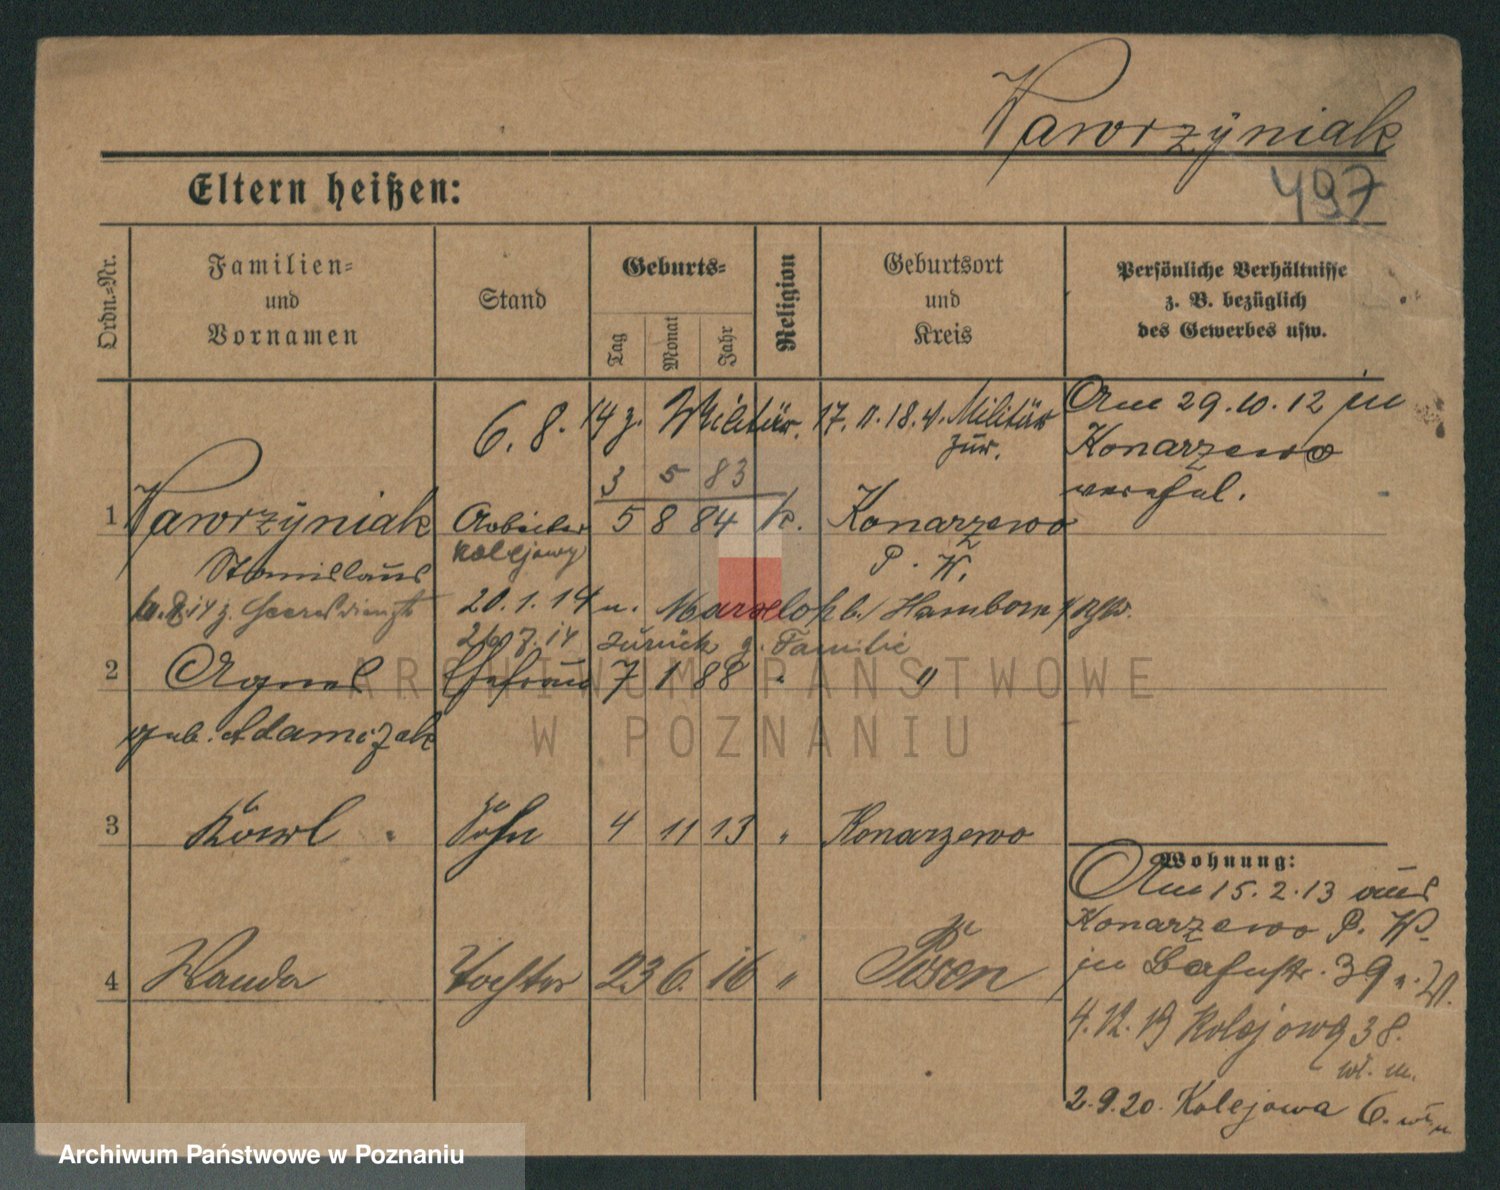 Wawrzyniak
497
Eltern heißen:
Ordn.-Nr.
Familien-
und
Vornamen
Stand
Geburts-
Tag
Monat
Jahr
Religion
Geburtsort
und
Kreis
Persönliche Verhältnisse
z. B. bezüglich
des Gewerbes usw.
6. 8. 14 z. Militär. 17. 11. 18. v. Militär
zur.
Am 29. 10. 12 in
Konarzewo
verehel.
3 5 83
1 Wawrzyniak Arbeiter 5 8 84 k. Konarzewo
Stanislaus kolejowy P. W.
8.14 z. Heeresdienst 20. 1. 14 n. Marxloh b/ Hamborn
26. 7. 14 zurück z. Familie
2 Agnes Ehefrau 7 1 88 " "
geb. Adamczak
3 Karl Sohn 4 11 13 " Konarzewo
Wohnung:
Am 15. 2. 13 aus
Konarzewo P. W.
in Bahnstr. 39
4 Wanda Tochter 23 6. 16 " Posen
4. 12. 19 Kolejowa 38.
2. 9. 20. Kolejowa 6.
ARCHIWUM PAŃSTWOWE
W POZNANIU
Archiwum Państwowe w Poznaniu